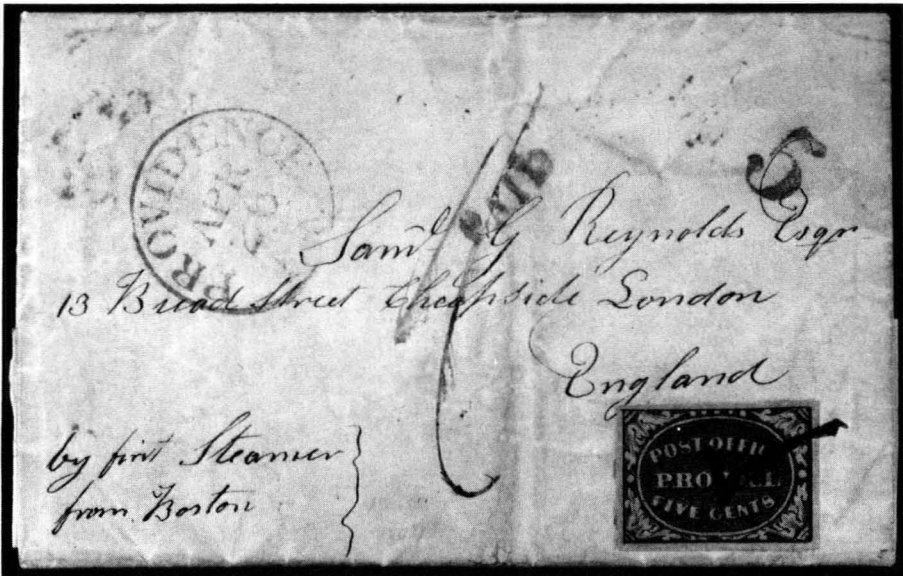 PROVIDENCE
APR
26
PAID
5
Saml G Reynolds Esqr
13 Bread Street Cheapside London
England
by first Steamer
from Boston
POST OFFIC
PRO R.I.
FIVE CENTS